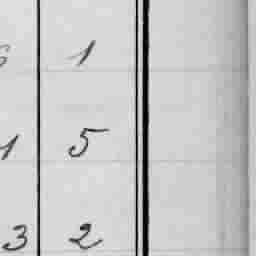 6 1
1 5
3 2